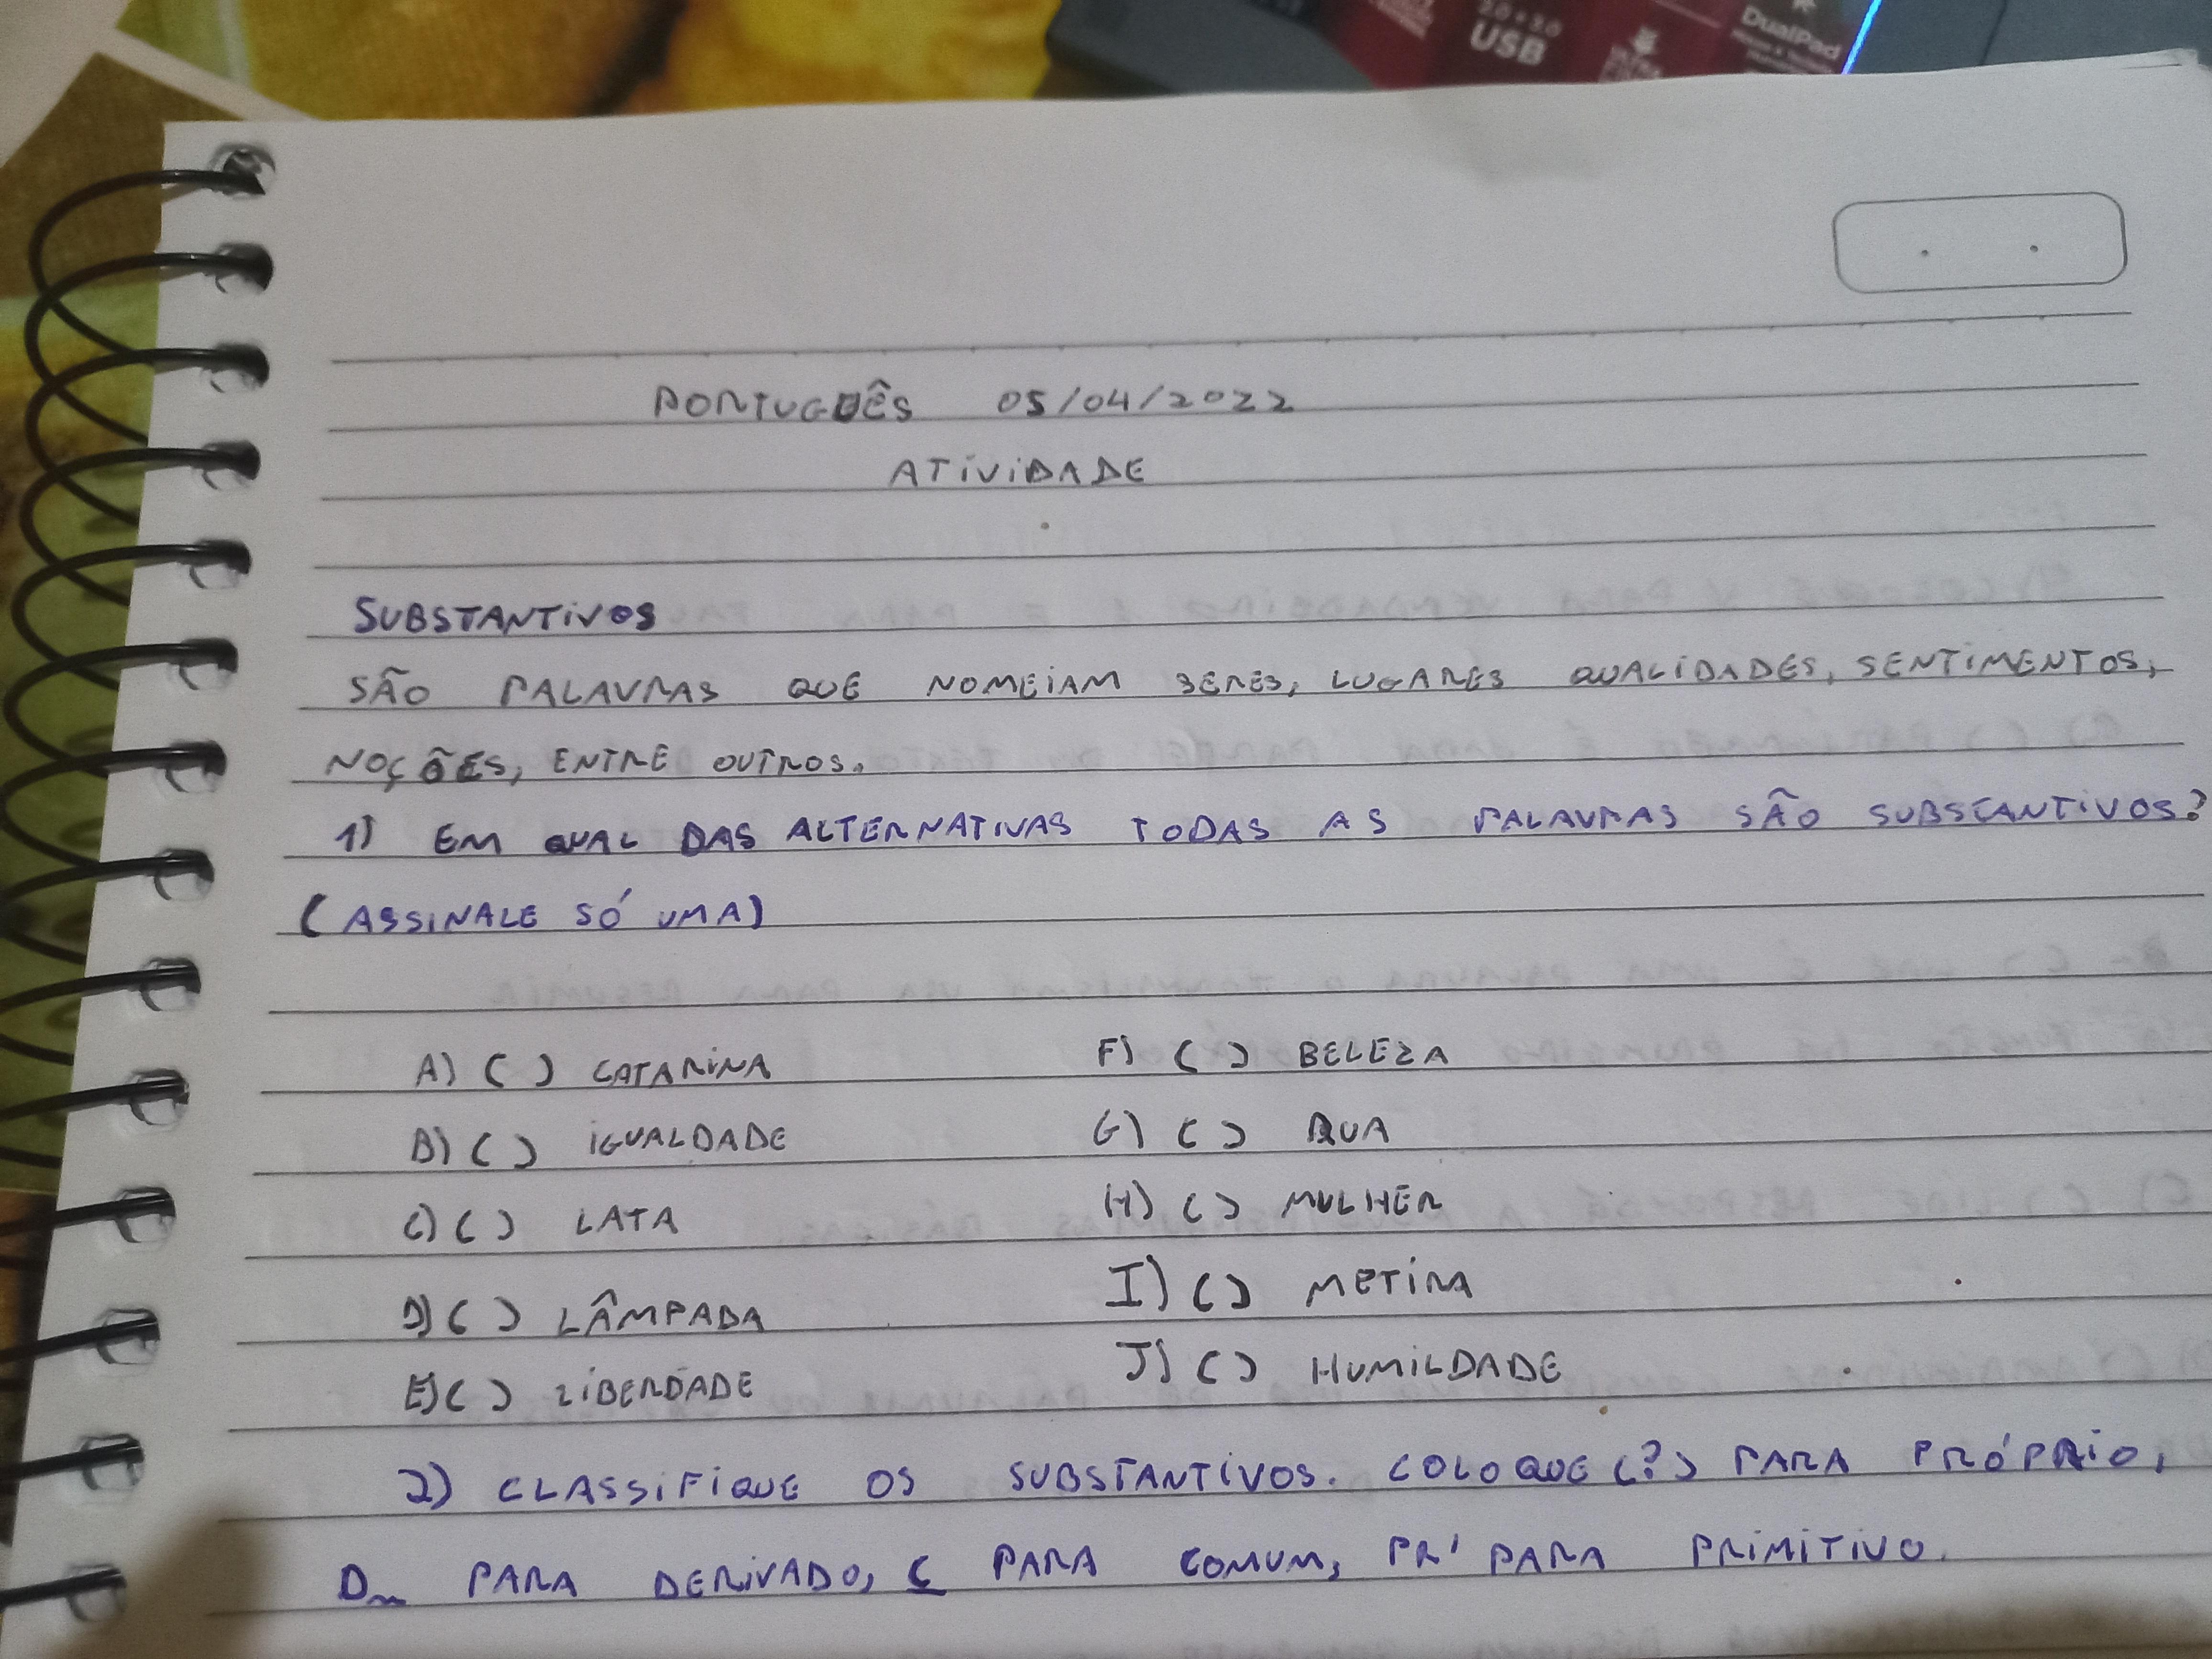 2.0 + 3.0
USB
DualPad
PORTUGUÊS 05/04/2022
ATIVIDADE
SUBSTANTIVOS
SÃO PALAVRAS QUE NOMEIAM SERES, LUGARES QUALIDADES, SENTIMENTOS,
NOÇÕES, ENTRE OUTROS.
1) EM QUAL DAS ALTERNATIVAS TODAS AS PALAVRAS SÃO SUBSTANTIVOS?
(ASSINALE SÓ UMA)
A) ( ) CATARINA
B) ( ) IGUALDADE
C) ( ) LATA
D) ( ) LÂMPADA
E) ( ) LIBERDADE
F) ( ) BELEZA
G) ( ) RUA
H) ( ) MULHER
I) ( ) METIRA
J) ( ) HUMILDADE
2) CLASSIFIQUE OS SUBSTANTIVOS. COLOQUE (?) PARA PRÓPRIO,
DR PARA DERIVADO, C PARA COMUM, PR' PARA PRIMITIVO.